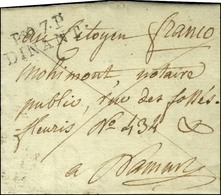 P.97.P
DINANT
au Citoyen franco
mohimont, notaire
public, rue des fossés
fleuris N° 434
a Namur